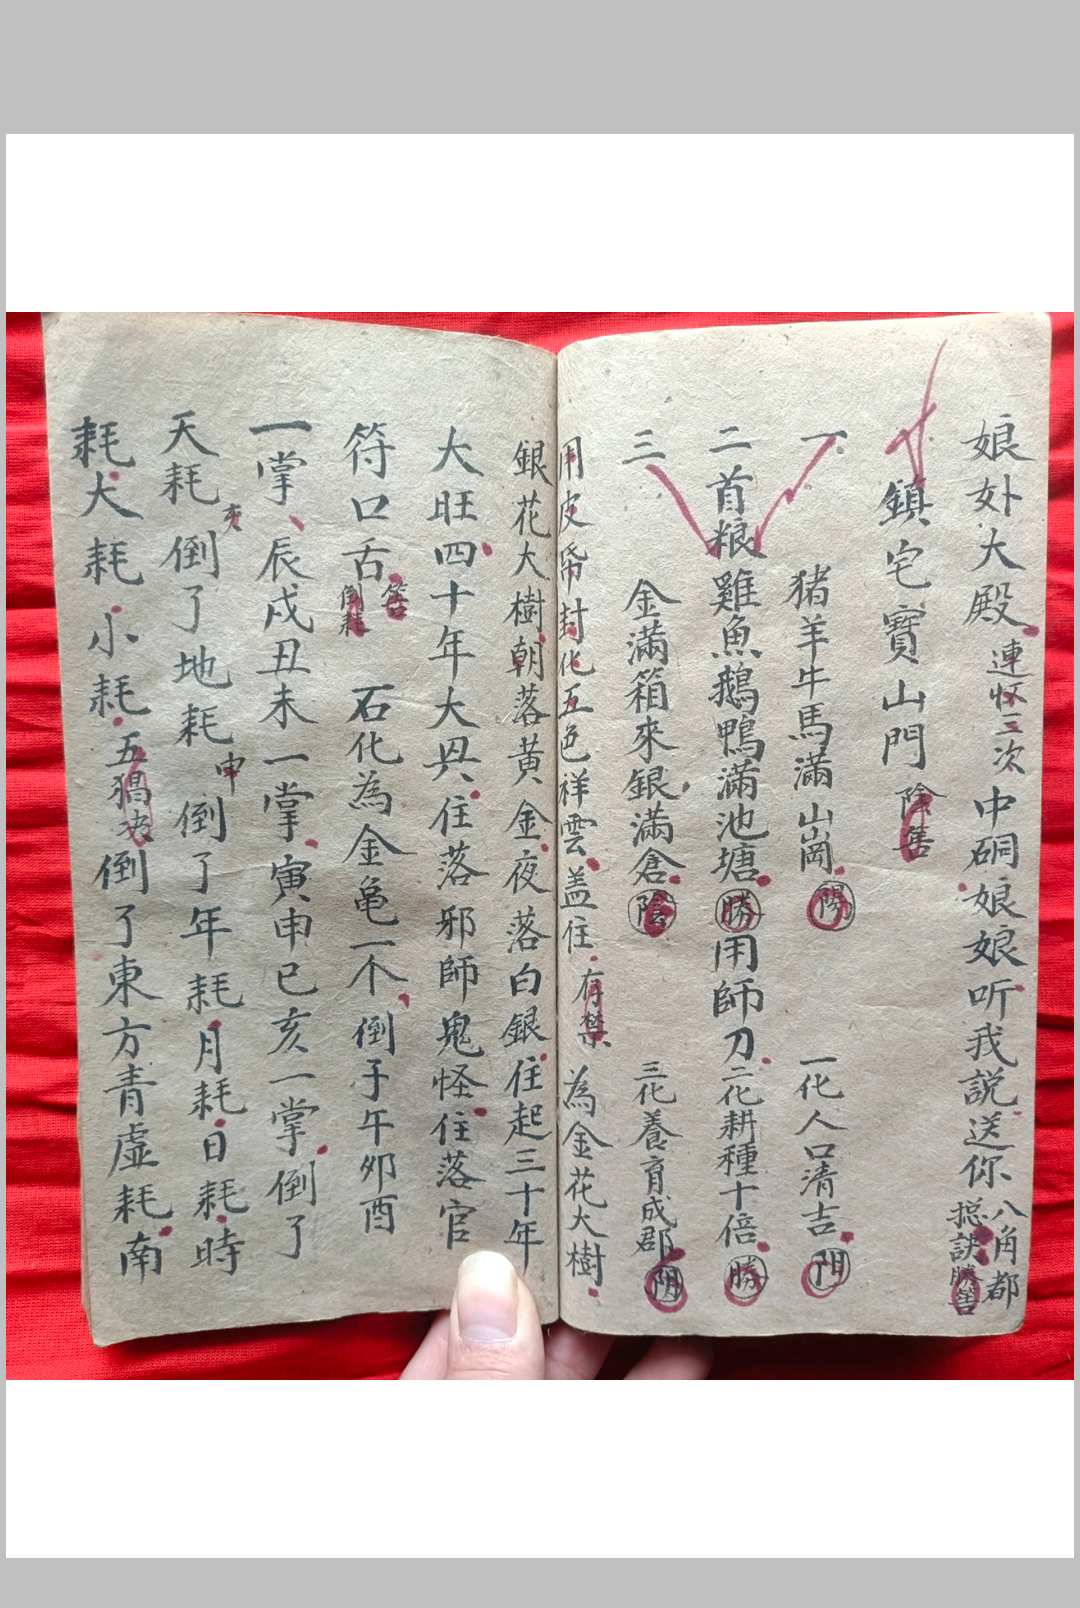 娘奻大殿連怀三次中硐娘娘听我説送你八角都摁訣勝筶
鎮宅寶山門陰筶
一猪羊牛馬滿山崗陽一化人口清吉阳
二首粮雞魚鵝鴨滿池塘勝用師刀二化耕種十倍勝
三金滿箱來銀滿倉陰三化養育成郡阴
用皮帋封化五色祥雲盖住存禁為金花大樹
銀花大樹朝落黄金夜落白銀住起三十年
大旺四十年大兴住落邪師鬼怪住落官
符口舌筶倒耗石化為金亀一个倒子午夘酉
一掌辰戌丑未一掌寅申巳亥一掌倒了
天耗倒了地耗申倒了年耗月耗日耗時
耗大耗小耗五猖倒了東方青虚耗南